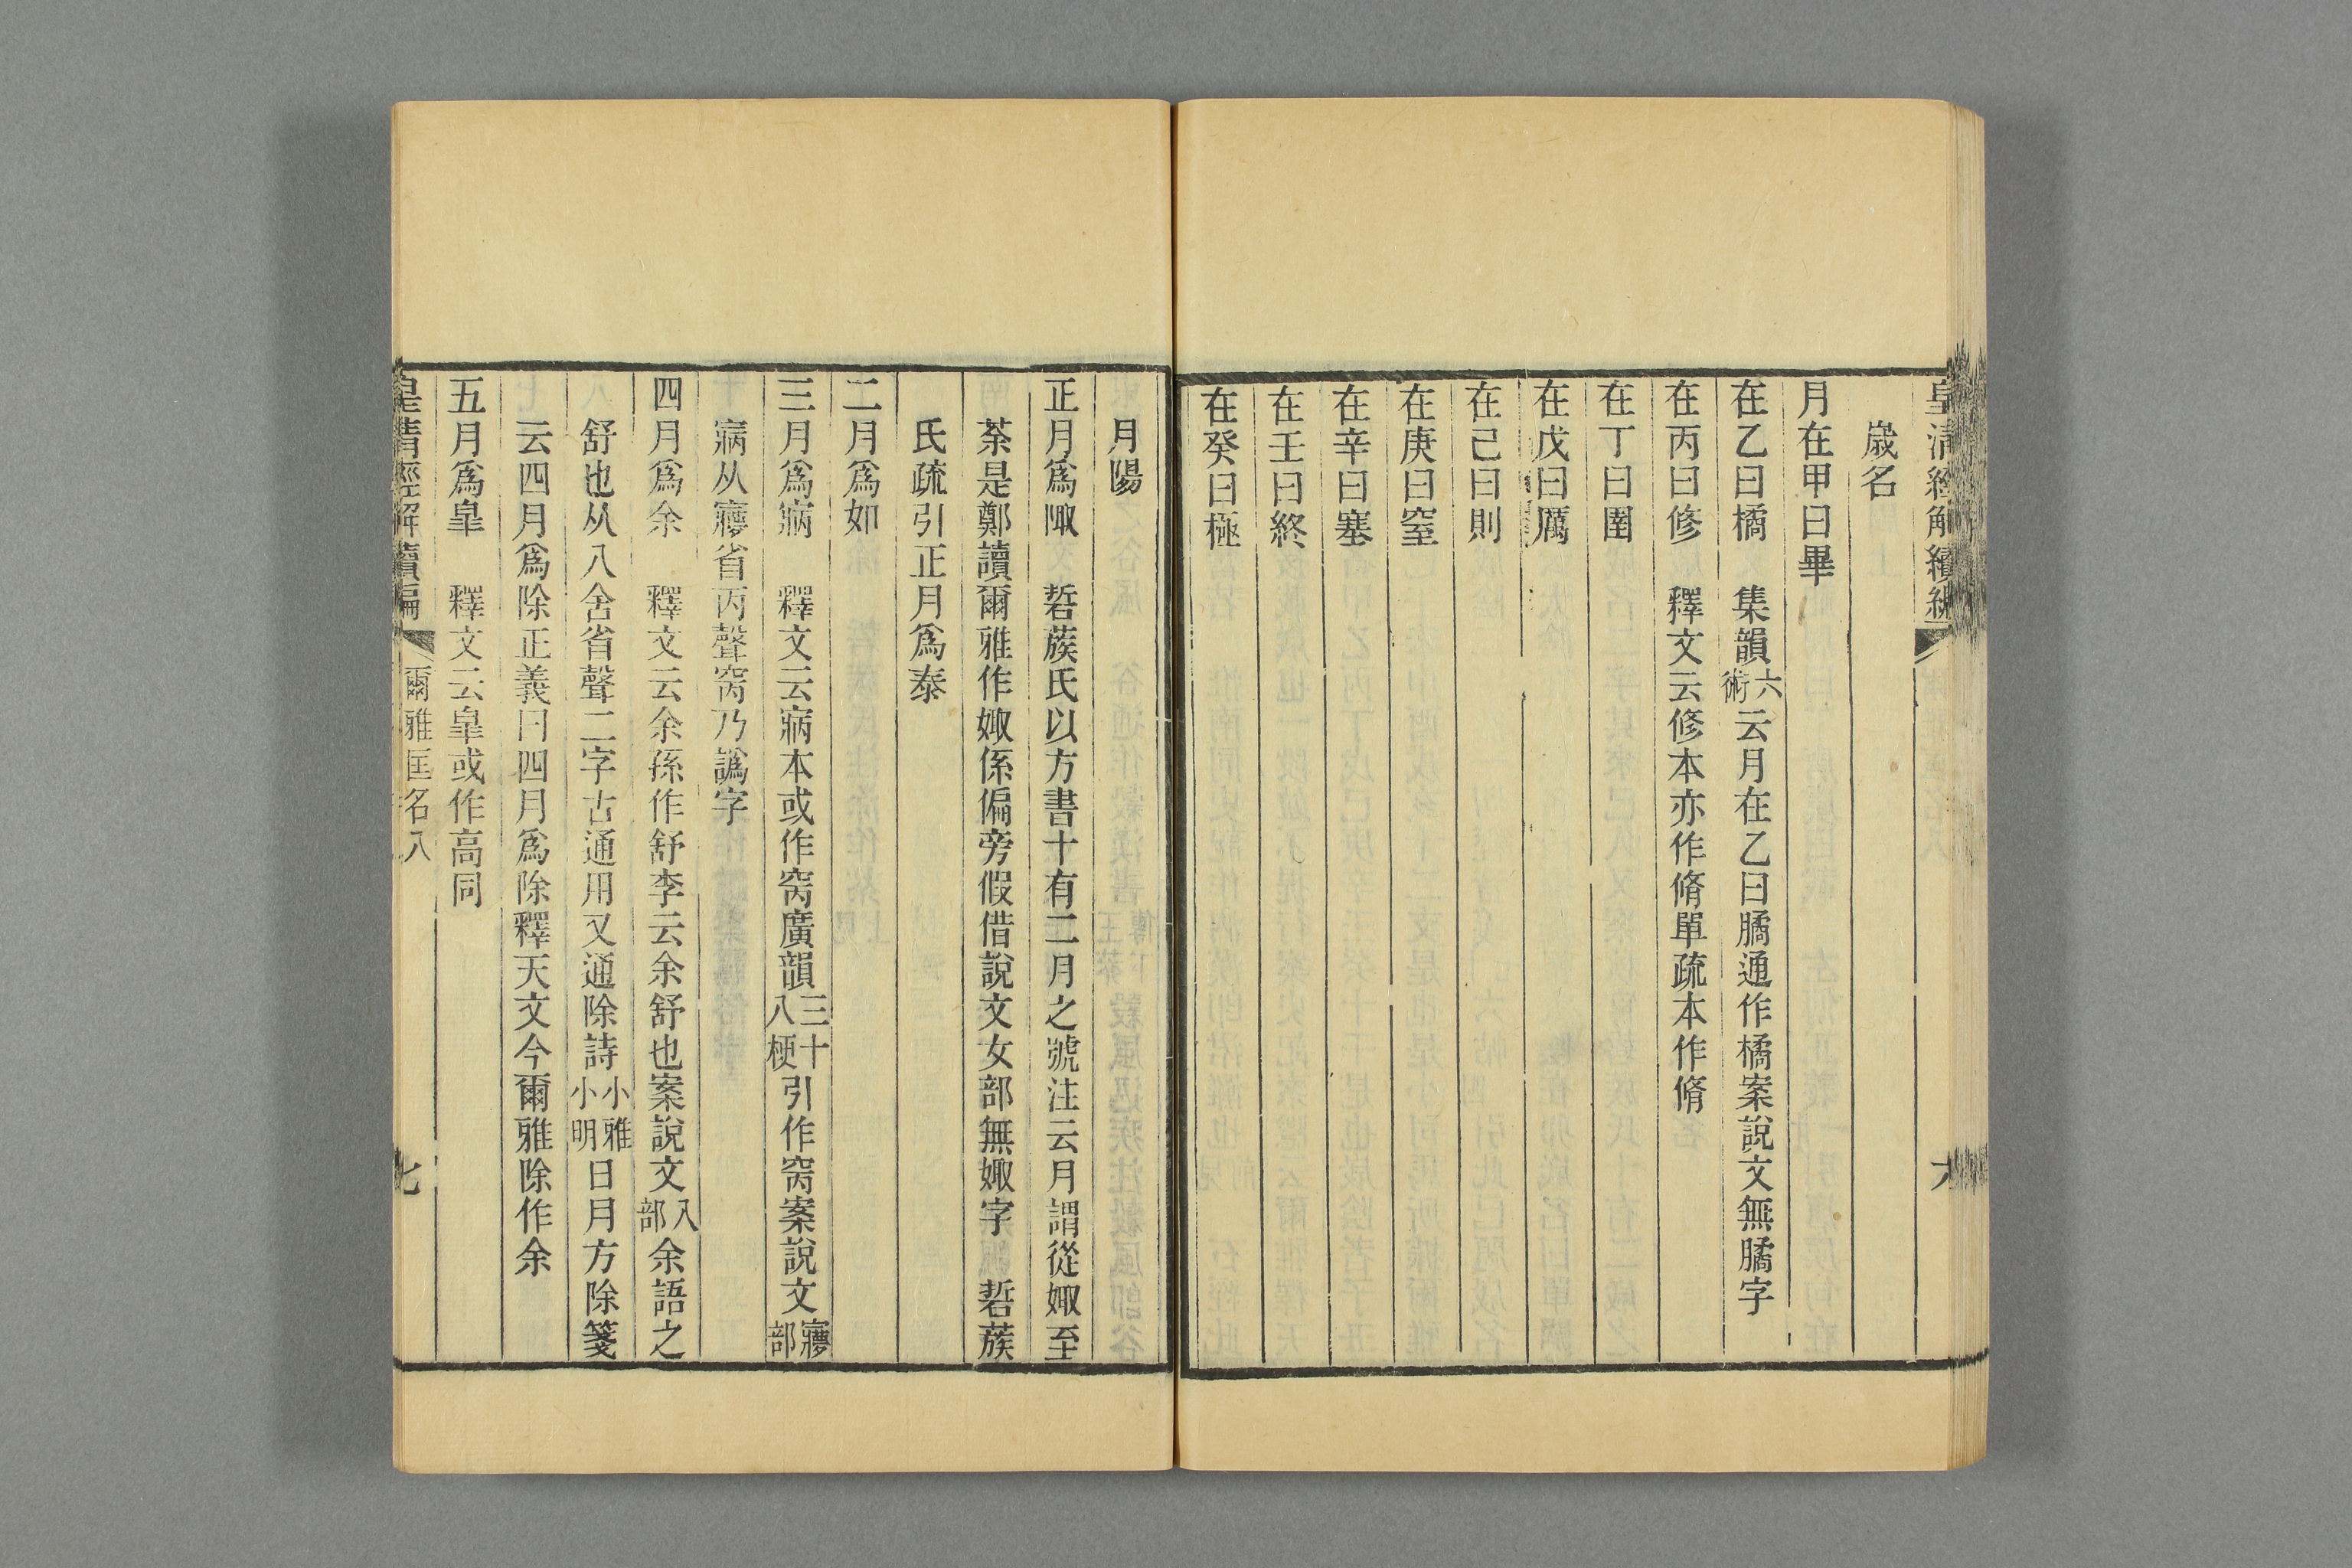 皇清經解續編
六
歲名
月在甲曰畢
在乙曰橘　集韻六術云月在乙曰𦠎通作橘案說文無𦠎字
在丙曰修　釋文云修本亦作脩單疏本作脩
在丁曰圉
在戊曰厲
在己曰則
在庚曰窒
在辛曰塞
在壬曰終
在癸曰極
月陽
正月爲陬　硩蔟氏以方書十有二月之號注云月謂從娵至
荼是鄭讀爾雅作娵係偏旁假借說文女部無娵字　硩蔟
氏疏引正月爲泰
二月爲如
三月爲寎　釋文云寎本或作窉廣韻三十八梗引作窉案說文㝱部
寎从㝱省丙聲窉乃譌字
四月爲余　釋文云余孫作舒李云余舒也案說文八部余語之
舒也从八舍省聲二字古通用又通除詩小雅小明日月方除箋
云四月爲除正義曰四月爲除釋天文今爾雅除作余
五月爲皐　釋文云皐或作高同
皇清經解續編
爾雅匡名八
七